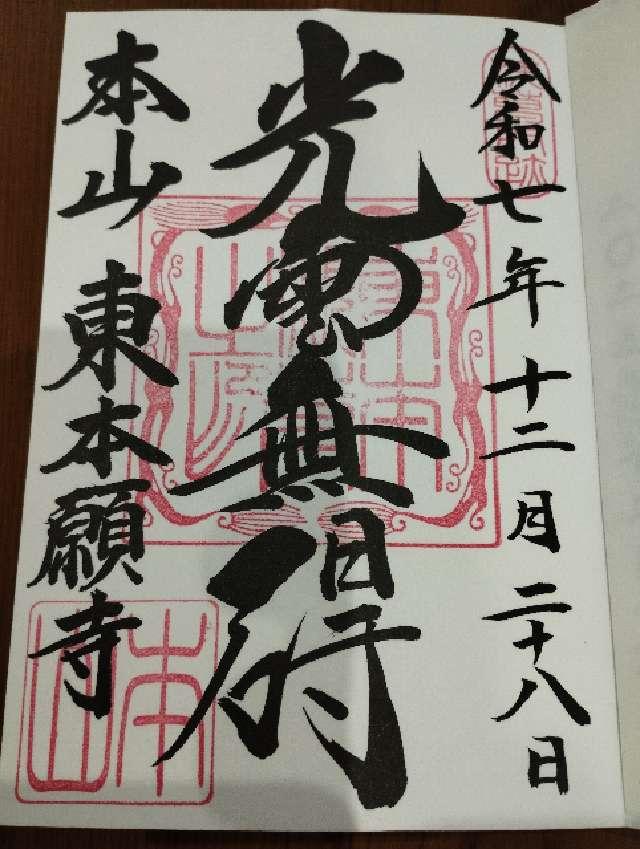 令和七年十二月二十八日
光雲無碍
本山 東本願寺
本山